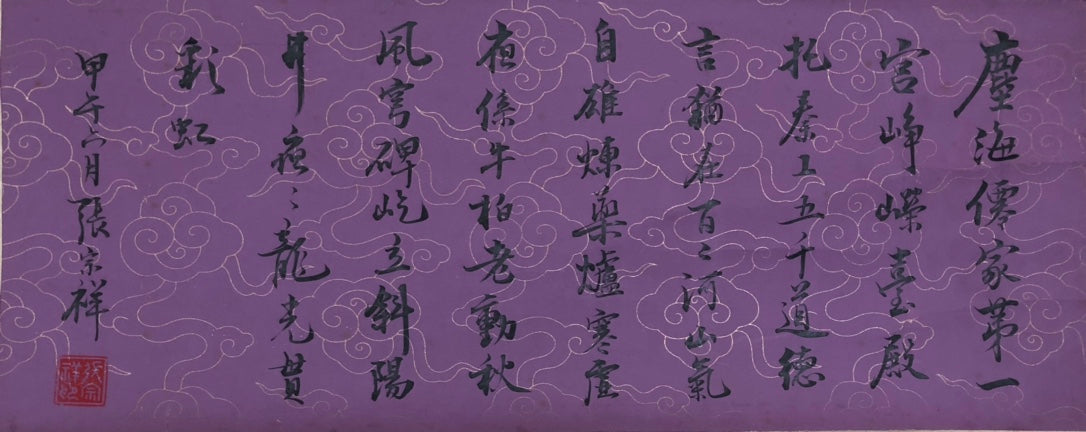 塵海僊家第一
宫峥嶸臺殿
托秦工五千道德
言猶在百二河山氣
自雄煉藥爐寒虛
夜係牛柏老動秋
風穹碑屹立斜陽
丹夜〻龍光貫
彩虹
甲午六月
張宗祥